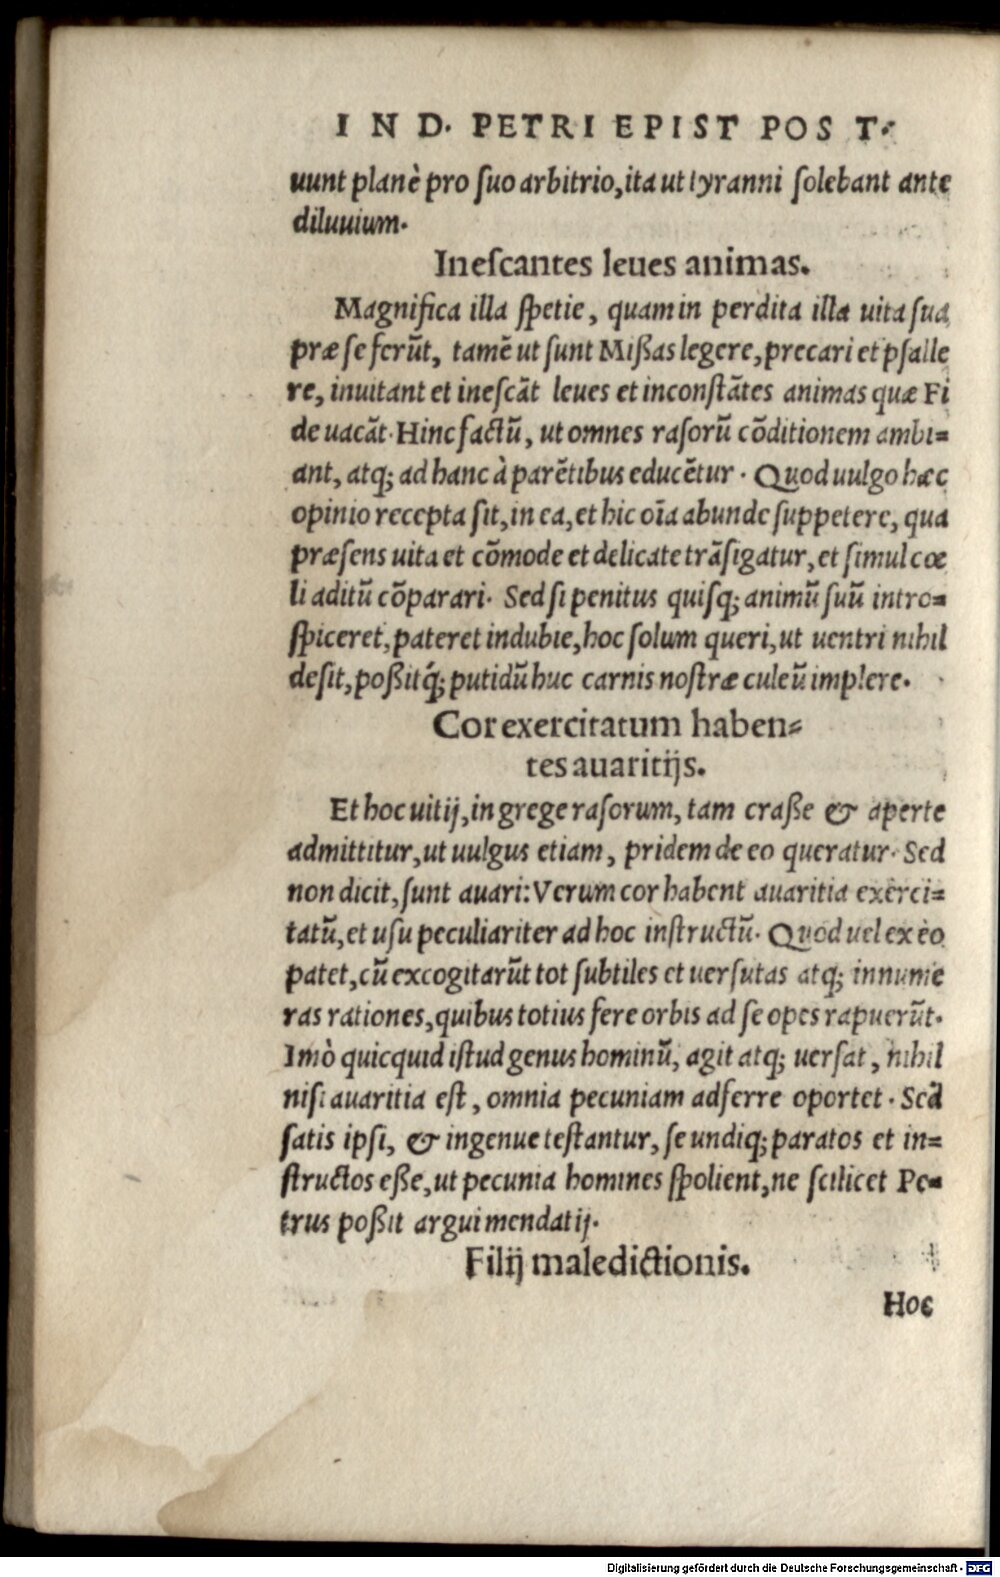 IN D. PETRI EPIST POST.
uunt planè pro ſuo arbitrio, ita ut tyranni ſolebant ante
diluuium.
Ineſcantes leues animas.
Magnifica illa ſpetie, quam in perdita illa uita ſua
præ ſe ferūt, tamē ut ſunt Mißas legere, precari et pſalle
re, inuitant et ineſcāt leues et inconſtātes animas quæ Fi
de uacāt. Hinc factū, ut omnes raſorū cōditionem ambi=
ant, atq; ad hanc à parētibus educētur. Quod uulgo hæc
opinio recepta ſit, in ea, et hic oīa abunde ſuppetere, qua
præſens uita et cōmode et delicate trāſigatur, et ſimul cœ
li aditū cōparari. Sed ſi penitus quiſq; animū ſuū intro=
ſpiceret, pateret indubie, hoc ſolum queri, ut uentri nihil
deſit, poßitq́; putidū huc carnis noſtræ culeū implere.
Cor exercitatum haben=
tes auaritijs.
Et hoc uitij, in grege raſorum, tam craße & aperte
admittitur, ut uulgus etiam, pridem de eo queratur. Sed
non dicit, ſunt auari: Verum cor habent auaritia exerci=
tatū, et uſu peculiariter ad hoc inſtructū. Quod uel ex eo
patet, cū excogitarūt tot ſubtiles et uerſutas atq; innume
ras rationes, quibus totius fere orbis ad ſe opes rapuerūt.
Imò quicquid iſtud genus hominū, agit atq; uerſat, nihil
niſi auaritia eſt, omnia pecuniam adferre oportet. Sed
ſatis ipſi, & ingenue teſtantur, ſe undiq; paratos et in=
ſtructos eße, ut pecunia homines ſpolient, ne ſcilicet Pe=
trus poßit argui mendatij.
Filij maledictionis.
Hoc
Digitalisierung gefördert durch die Deutsche Forschungsgemeinschaft - DFG